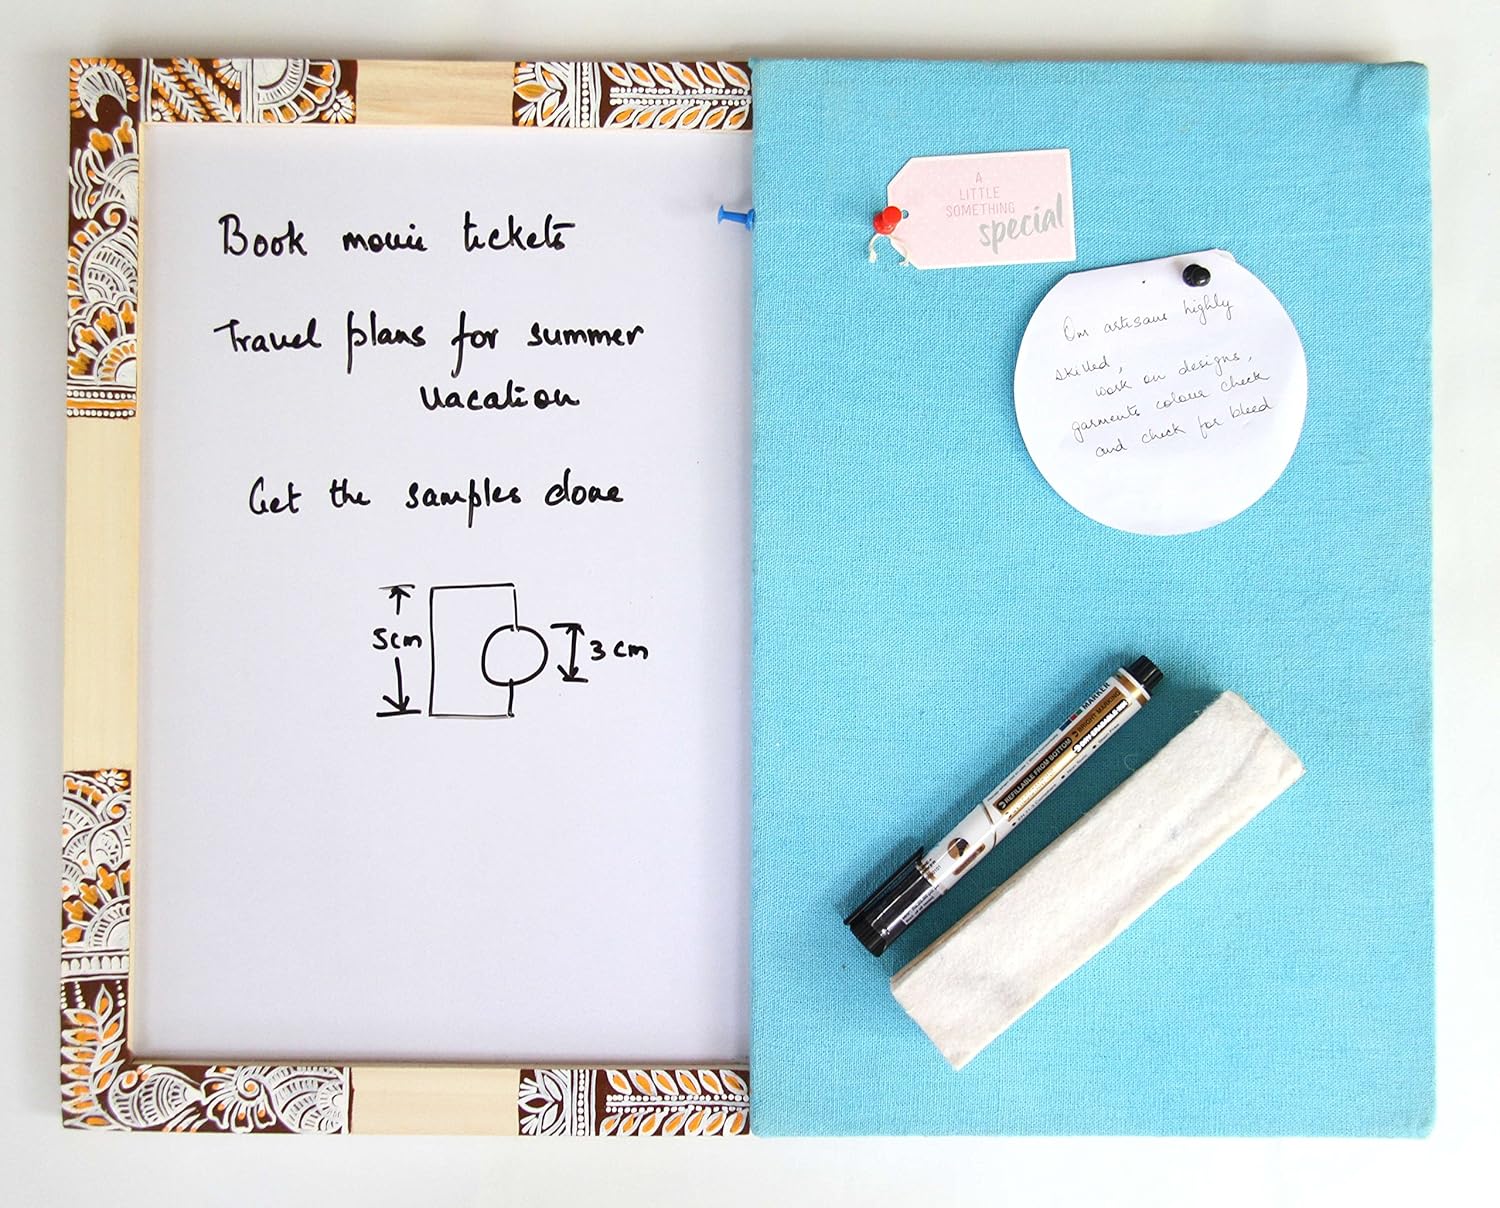 Book movie tickets
Travel plans for summer
vacation
Get the samples done
5cm
3 cm
A
LITTLE
SOMETHING
special
Our artisans highly
skilled,
work on designs,
garments colour check
and check for bleed
MARKER
BRIGHT MARKING
REFILLABLE FROM BOTTOM